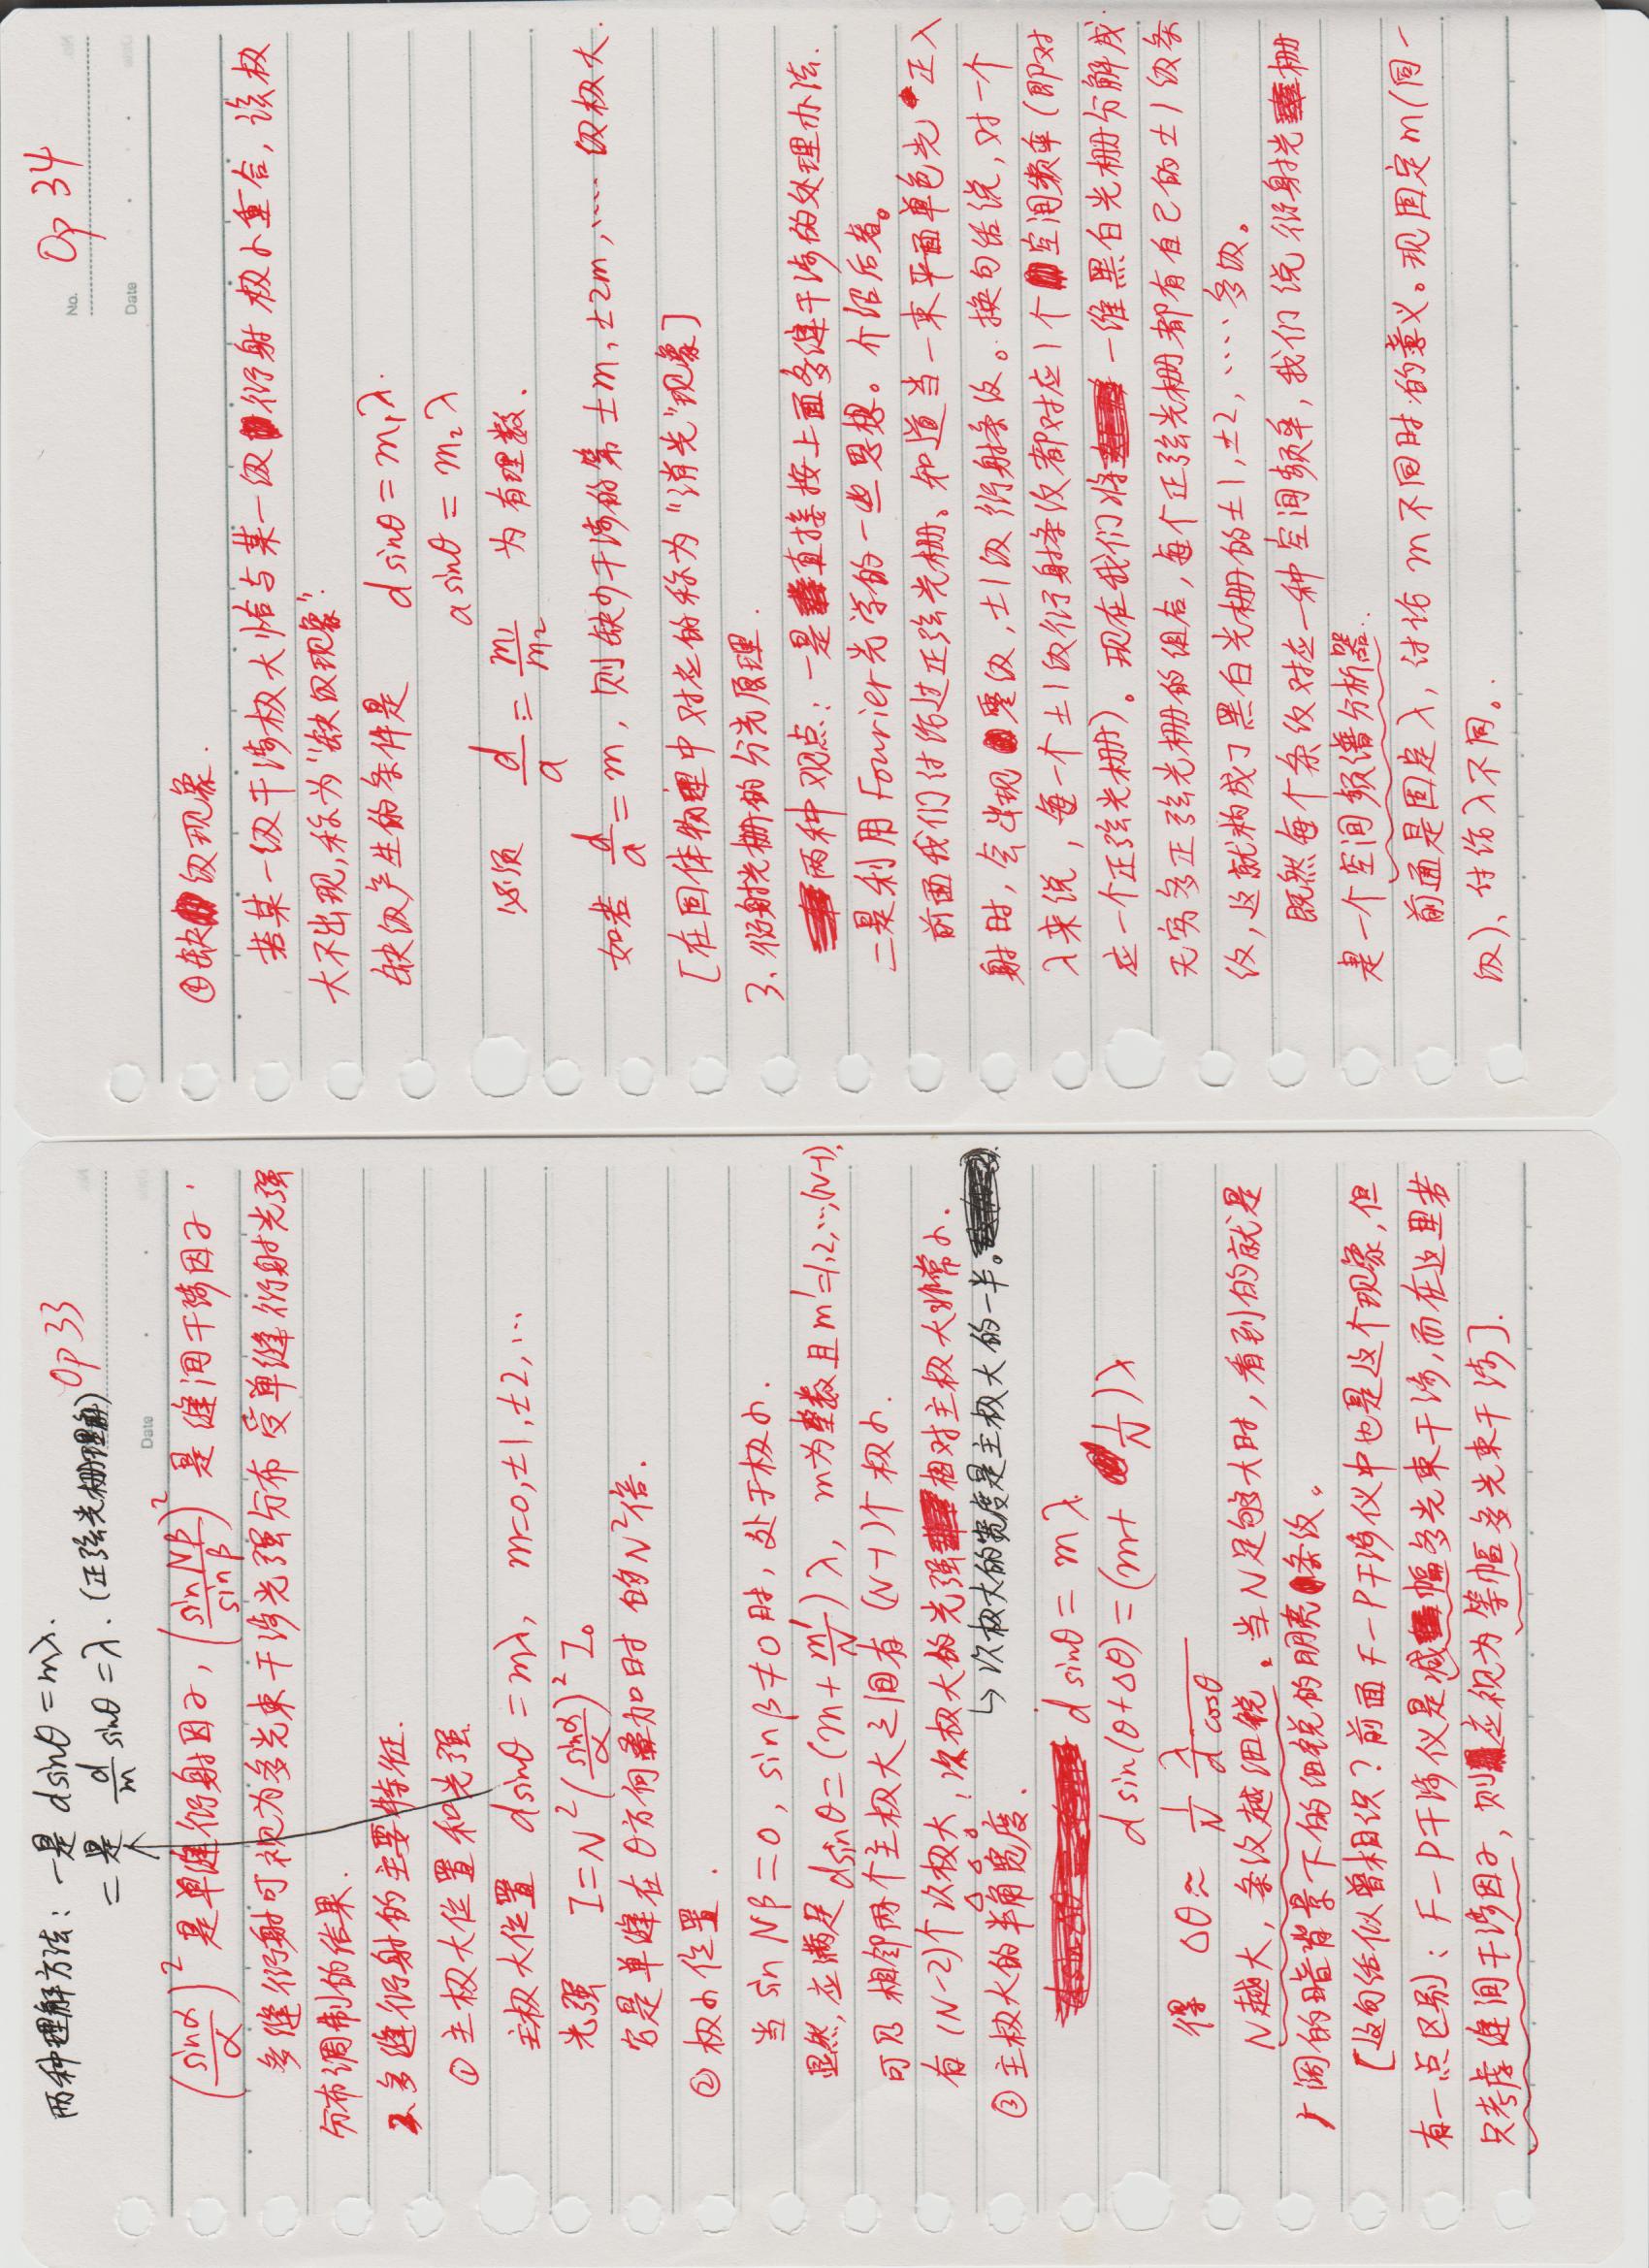 两种理解方法：一是 dsinθ=mλ.
二是 d/m sinθ=λ.（正弦光栅理解）
Op 33
Date
(sinα/α)² 是单缝衍射因子, (sinNβ/sinβ)² 是缝间干涉因子.
多缝衍射可视为多光束干涉光强分布受单缝衍射光强
分布调制的结果.
2.多缝衍射的主要特征.
①主极大位置和光强.
主极大位置 dsinθ=mλ, m=0,±1,±2,…
光强 I=N²(sinα/α)²I₀
它是单缝在θ方向叠加时的N²倍.
②极小位置.
当 sinNβ=0, sinβ≠0时, 处于极小.
显然, 应满足 dsinθ=(m+m'/N)λ, m为整数且m'=1,2,…,(N-1).
可见相邻两个主极大之间有(N-1)个极小.
有(N-2)个次极大, 次极大的光强相对主极大非常小.
↳次极大的宽度是主极大的一半。
③主极大的半角宽度.
d sinθ=mλ.
d sin(θ+Δθ)=(m+1/N)λ
得 Δθ≈ 1/N λ/(d cosθ)
N越大, 条纹越细锐。当N足够大时, 看到的就是
广阔的暗背景下的细锐的明亮条纹。
[这句话似曾相识？前面F-P干涉仪中也是这个现象, 但
有一点区别: F-P干涉仪是减幅多光束干涉, 而在这里若
只考虑缝间干涉因子, 则应视为等幅多光束干涉].
No. Op 34
Date
④缺级现象.
若某一级干涉极大恰与某一级衍射极小重合, 该极
大不出现, 称为“缺级现象”.
缺级产生的条件是 d sinθ=m₁λ.
a sinθ=m₂λ
必须 d/a=m₁/m₂ 为有理数.
如若 d/a=m, 则缺少干涉的第±m,±2m,…. 级极大.
[在固体物理中对应的称为“消光”现象]
3、衍射光栅的分光原理.
两种观点: 一是直接按上面多缝干涉的处理办法.
二是利用Fourier光学的一些思想。介绍后者。
前面我们讨论过正弦光栅。知道当一束平面单色光正入
射时, 会出现零级, ±1级衍射条纹。换句话说, 对一个
λ来说, 每一个±1级衍射条纹都对应1个空间频率(即对
应一个正弦光栅)。现在我们将一维黑白光栅分解成
无穷多正弦光栅的组合, 每个正弦光栅都有自己的±1级条
纹, 这就构成了黑白光栅的±1,±2,…..多级。
既然每个条纹对应一种空间频率, 我们说衍射光栅
是一个空间频谱分析器.
前面是固定λ, 讨论m不同时的意义。现固定m(同一
级)、讨论λ不同。